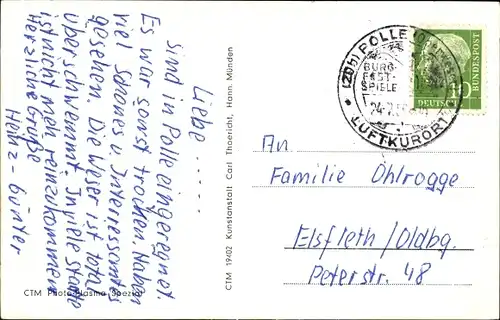 Liebe ......
sind in Polle eingeregnet.
Es war sonst trocken. Haben
viel Schönes u Interessantes
gesehen. Die Weser ist total
überschwemmt. In viele Städte
ist nicht mehr reinzukommen
Herzliche Grüße
Heinz-Günter
CTM Photo-Plasina Spezial
CTM 19402 Kunstanstalt Carl Thoericht, Hann. Münden
(20b) POLLE
BURG
FEST-
SPIELE
LUFTKURORT
10
DEUTSCHE
BUNDESPOST
An
Familie Ohlrogge
Elsfleth/Oldbg.
Peterstr. 48